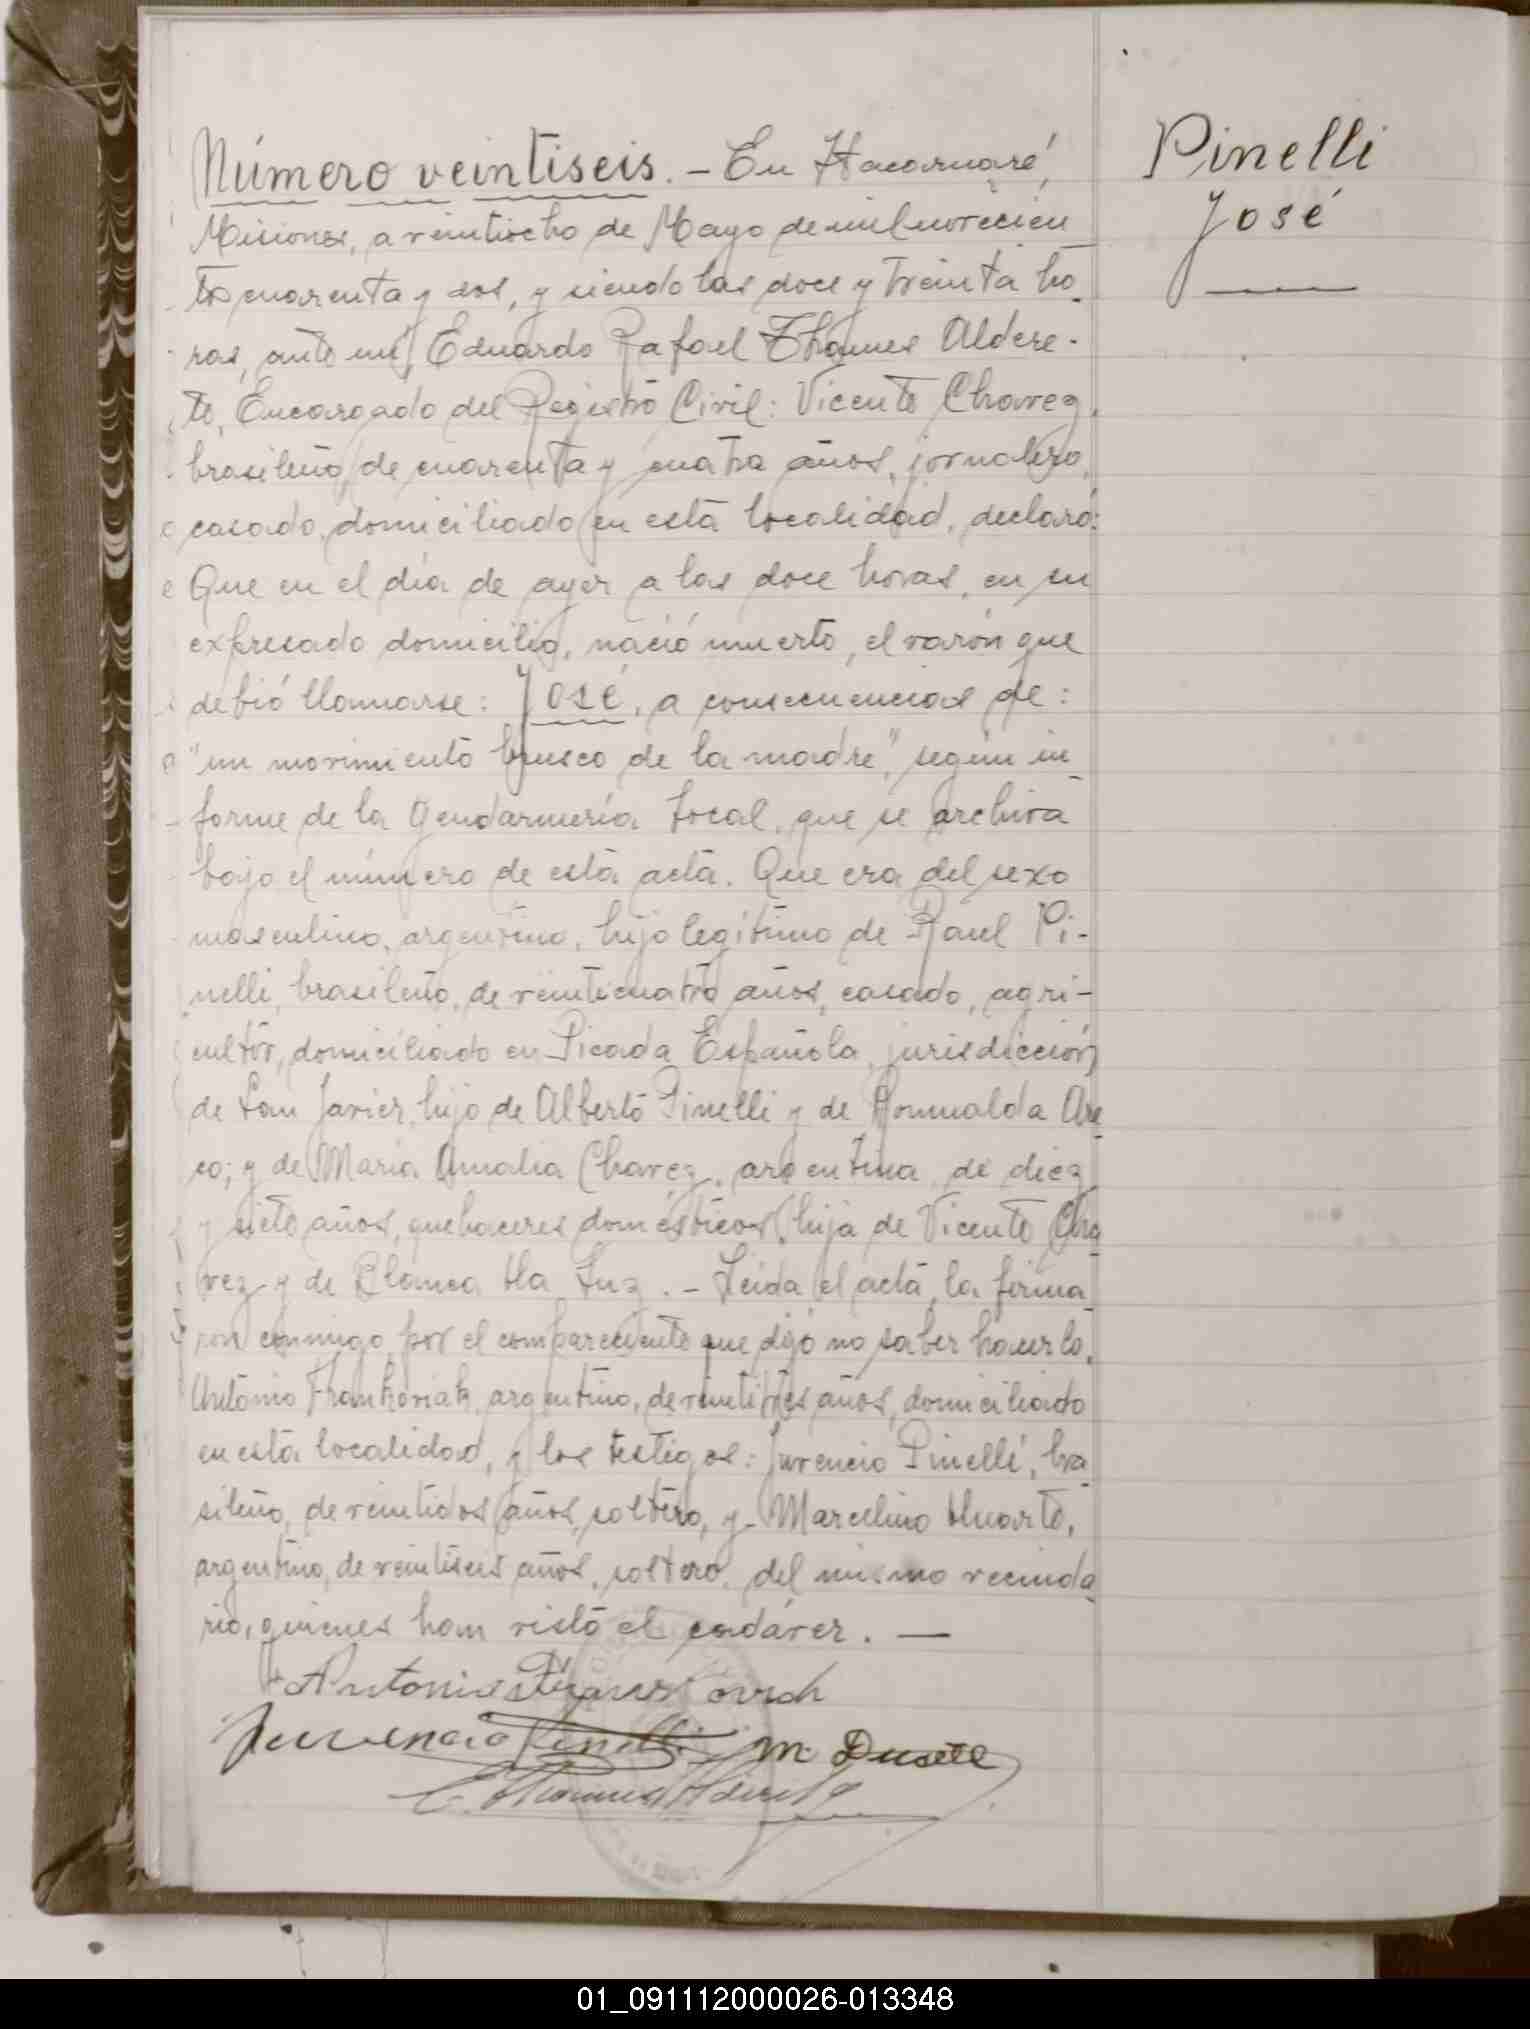 Número veintiseis. - En Itacaruaré,
Misiones, a veintiocho de Mayo de mil novecien
tos cuarenta y dos, y siendo las doce y treinta ho_
ras, ante mí, Eduardo Rafael Thames Aldere-
te, Encargado del Registro Civil: Vicente Chavez,
brasileño, de cuarenta y cuatro años, jornalero,
casado, domiciliado en esta localidad, declaró:
Que en el día de ayer a las doce horas, en su
expresado domicilio, nació muerto, el varón que
debió llamarse: José, a consecuencias de:
"un movimiento brusco de la madre", según in_
forme de la Gendarmería local, que se archiva
bajo el número de esta acta. Que era del sexo
masculino, argentino, hijo legítimo de Raul Pi-
nelli, brasileño, de veinticuatro años, casado, agri-
cultor, domiciliado en Picada Española, jurisdicción
de San Javier, hijo de Alberto Pinelli y de Romualda
co; y de María Amalia Chavez, argentina, de diez
y siete años, quehaceres domésticos, hija de Vicente Cha_
vez y de Blanca Luz. - Leida el acta, la firma_
ron conmigo, por el compareciente que dijo no saber hacerlo,
Antonio argentino, de veintitrés años, domiciliado
en esta localidad, y los testigos: Juvencio Pinelli, bra_
sileño, de veintidos años, soltero, y Marcelino
argentino, de veintiseis años, soltero, del mismo vecinda_
rio, quienes han visto el cadáver. —
Antonio
Juvencio Pinelli M Duarte
E. Thames Alderete
Pinelli
José
01_091112000026-013348